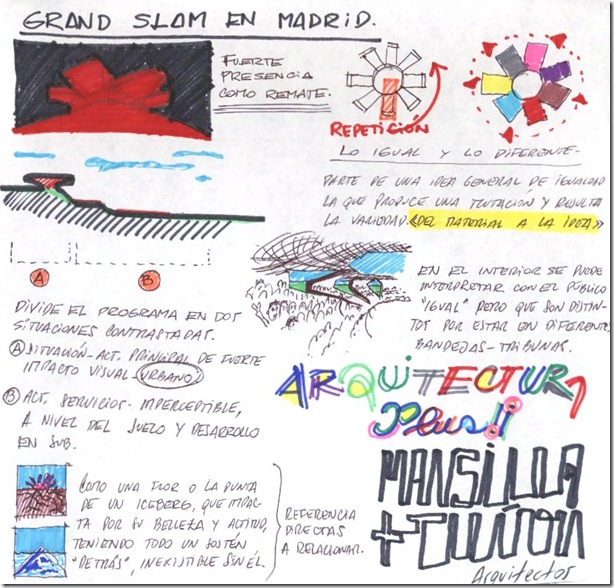 GRAND SLAM EN MADRID.
FUERTE
PRESENCIA
COMO REMATE.
REPETICIÓN
LO IGUAL Y LO DIFERENTE-
PARTE DE UNA IDEA GENERAL DE IGUALDAD
LA QUE PRODUCE UNA MUTACION Y RESULTA
LA VARIEDAD. «DEL MATERIAL A LA IDEA»
A
B
EN EL INTERIOR SE PUEDE
INTERPRETAR CON EL PÚBLICO
"IGUAL" PERO QUE SON DISTIN-
TOS POR ESTAR EN DIFERENTE
BANDEJAS-TRIBUNAS.
DIVIDE EL PROGRAMA EN DOS
SITUACIONES CONTRASTADAS.
A SITUACIÓN-ACT. PRINCIPAL DE FUERTE
IMPACTO VISUAL-URBANO
B ACT. SERVICIOS-IMPERCEPTIBLE,
A NIVEL DEL SUELO Y DESAROLLO
EN SUB.
ARQUITECTURA
Plus!!
MANSILLA
+TUÑON
Arquitectos
COMO UNA FLOR O LA PUNTA
DE UN ICEBERG, QUE IMPAC-
TA POR SU BELLEZA Y ACTITUD,
TENIENDO TODO UN SOSTÉN
"DETRÁS", INEXISTIBLE SIN ÉL.
REFERENCIA
DIRECTAS
A RELACIONAR.